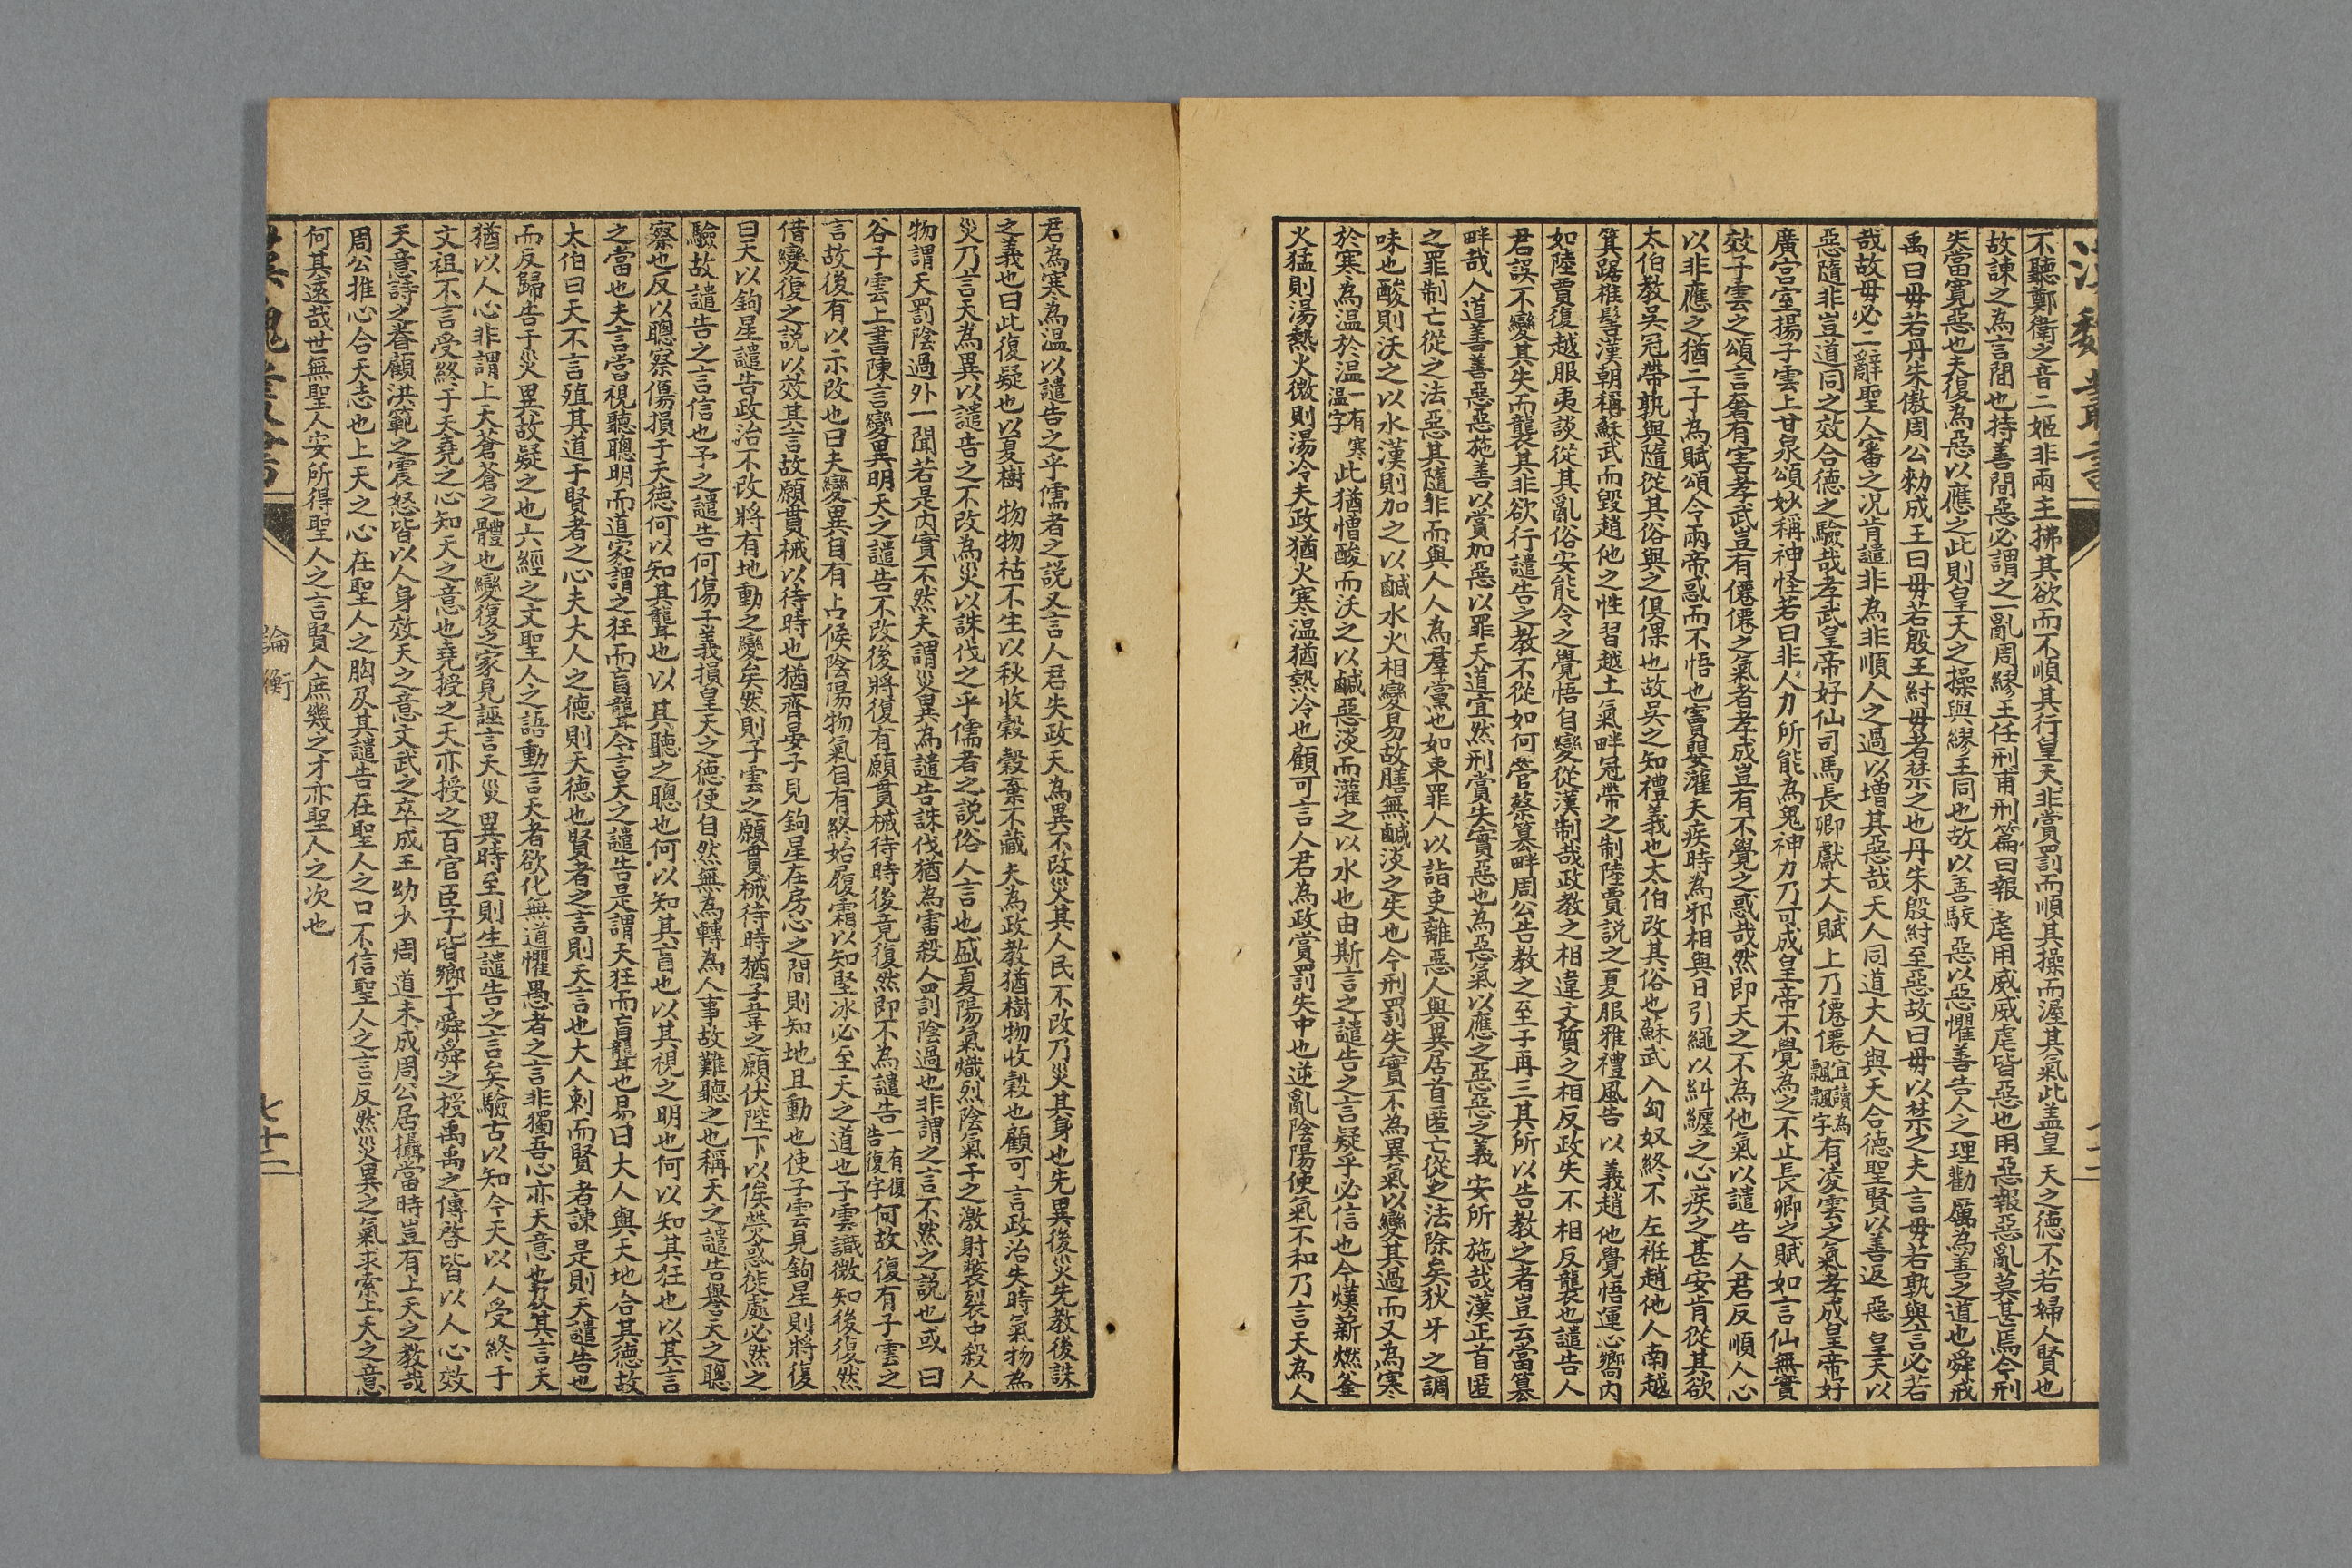 不聽鄭衛之音二姬非兩主拂其欲而不順其行皇天非賞罰而順其操而渥其氣此盖皇天之德不若婦人賢也
故諫之為言間也持善間惡必謂之一亂周繆王任刑甫刑篇曰報虐用威威虐皆惡也用惡報惡亂莫甚焉今刑
失當寬惡也夫復為惡以應之此則皇天之操與繆王同也故以善駮惡以惡懼善告人之理勸厲為善之道也舜戒
禹曰毋若丹朱傲周公勑成王曰毋若殷王紂毋者禁之也丹朱殷紂至惡故曰毋以禁之夫言毋若孰與言必若
哉故毋必二辭聖人審之况肯譴非為非順人之過以增其惡哉天人同道大人與天合德聖賢以善返惡皇天以
惡隨非豈道同之效合德之驗哉孝武皇帝好仙司馬長卿獻大人賦上乃僊僊宜讀為飄飄字有凌雲之氣孝成皇帝好
廣宫室揚子雲上甘泉頌妙稱神怪若曰非人力所能為鬼神力乃可成皇帝不覺為之不止長卿之賦如言仙無實
效子雲之頌言奢有害孝武豈有僊僊之氣者孝成豈有不覺之惑哉然即天之不為他氣以譴告人君反順人心
以非應之猶二子為賦頌令兩帝惑而不悟也竇嬰灌夫疾時為邪相與日引繩以糾纏之心疾之甚安肯從其欲
太伯教吳冠帶孰與隨從其俗與之俱倮也故吳之知禮義也太伯改其俗也蘇武入匈奴終不左衽趙他人南越
箕踞椎髻漢朝稱蘇武而毀趙他之性習越土氣畔冠帶之制陸賈説之夏服雅禮風告以義趙他覺悟運心嚮内
如陸賈復越服夷談從其亂俗安能令之覺悟自變從漢制哉政教之相違文質之相反政失不相反襲也譴告人
君誤不變其失而襲其非欲行譴告之教不從如何管蔡簒畔周公告教之至于再三其所以告教之者豈云當簒
畔哉人道善善惡惡施善以賞加惡以罪天道宜然刑賞失實惡也為惡氣以應之惡惡之義安所施哉漢正首匿
之罪制亡從之法惡其隨非而與人人為羣黨也如束罪人以詣吏離惡人與異居首匿亡從之法除矣狄牙之調
味也酸則沃之以水漢則加之以鹹水火相變易故膳無鹹淡之失也今刑罰失實不為異氣以變其過而又為寒
於寒為温於温一有寒温字此猶憎酸而沃之以鹹惡淡而灌之以水也由斯言之譴告之言疑乎必信也今熯薪燃釜
火猛則湯熱火微則湯冷夫政猶火寒温猶熱冷也顧可言人君為政賞罰失中也逆亂陰陽使氣不和乃言天為人
君為寒為温以譴告之乎儒者之説又言人君失政天為異不改災其人民不改乃災其身也先異後災先教後誅
之義也曰此復疑也以夏樹物物枯不生以秋收穀穀棄不藏夫為政教猶樹物收穀也顧可言政治失時氣物為
災乃言天為異以譴告之不改為災以誅伐之乎儒者之説俗人言也盛夏陽氣熾烈陰氣干之激射襒裂中殺人
物謂天罰陰過外一聞若是内實不然夫謂災異為譴告誅伐猶為雷殺人罰陰過也非謂之言不然之説也或曰
谷子雲上書陳言變異明天之譴告不改後將復有願貫械待時後竟復然即不為譴告一有復告復字何故復有子雲之
言故後有以示改也曰夫變異自有占候陰陽物氣自有終始履霜以知堅冰必至天之道也子雲識微知後復然
借變復之説以效其言故願貫械以待時也猶齊晏子見鉤星在房心之間則知地且動也使子雲見鉤星則將復
曰天以鉤星譴告政治不改將有地動之變矣然則子雲之願貫械待時猶子韋之願伏陛下以俟熒惑徙處必然之
驗故譴告之言信也予之譴告何傷于義損皇天之德使自然無為轉為人事故難聽之也稱天之譴告譽天之聰
察也反以聰察傷損于天德何以知其聾也以其聽之聰也何以知其盲也以其視之明也何以知其狂也以其言
之當也夫言當視聽聰明而道家謂之狂而盲聾今言天之譴告是謂天狂而盲聾也易曰大人與天地合其德故
太伯曰天不言殖其道于賢者之心夫大人之德則天德也賢者之言則天言也大人刺而賢者諫是則天譴告也
而反歸告于災異故疑之也六經之文聖人之語動言天者欲化無道懼愚者之言非獨吾心亦天意也及其言天
猶以人心非謂上天蒼蒼之體也變復之家見誣言天災異時至則生譴告之言矣驗古以知今天以人受終于
文祖不言受終于天堯之心知天之意也堯授之天亦授之百官臣子皆鄉于舜舜之授禹禹之傳啓皆以人心效
天意詩之眷顧洪範之震怒皆以人身效天之意文武之卒成王幼少周道未成周公居攝當時豈有上天之教哉
周公推心合天志也上天之心在聖人之胸及其譴告在聖人之口不信聖人之言反然災異之氣求索上天之意
何其遠哉世無聖人安所得聖人之言賢人庶幾之才亦聖人之次也
論衡
七十二